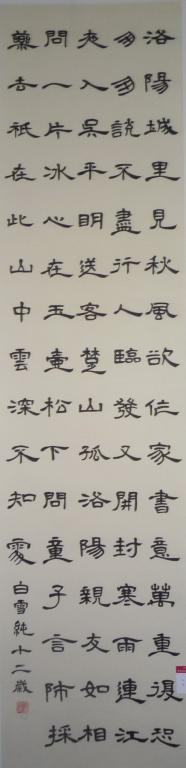 洛陽城里見秋風欲作家書意萬重復恐
匆匆說不盡行人臨發又開封寒雨連江
夜入吳平明送客楚山孤洛陽親友如相
問一片冰心在玉壺松下問童子言師採
藥去祇在此山中雲深不知處
白雪純十二歲